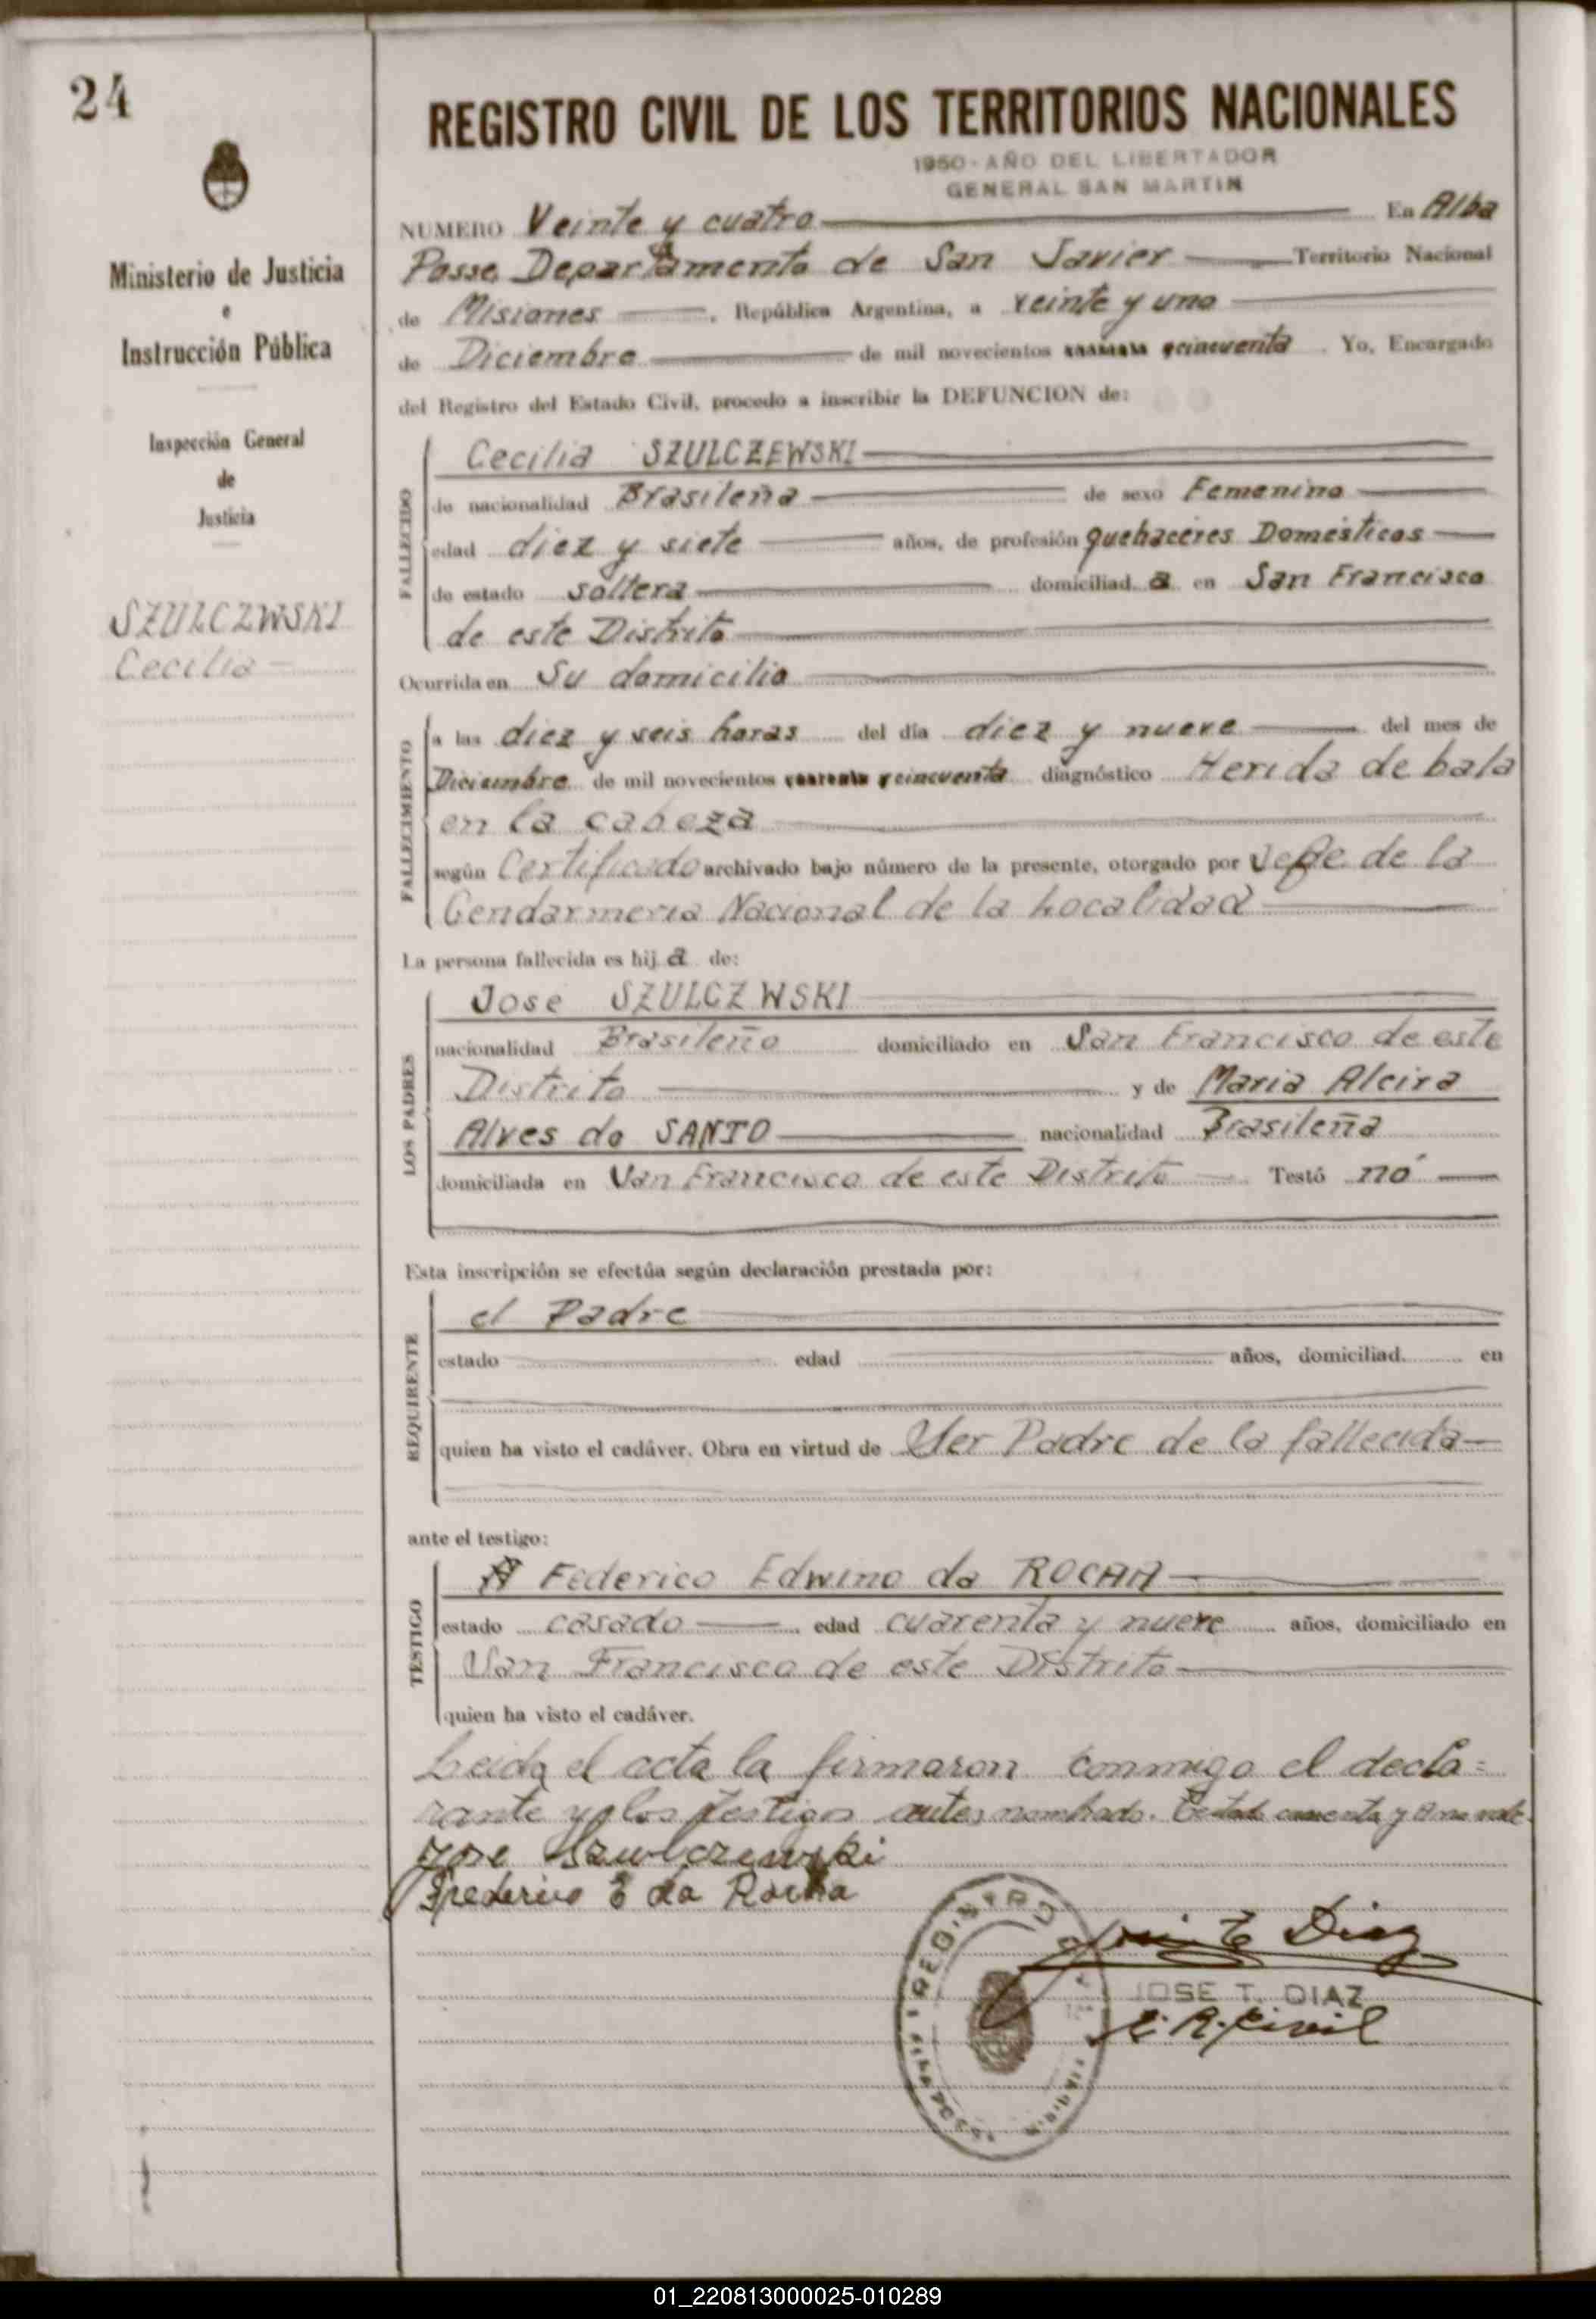 24
REGISTRO CIVIL DE LOS TERRITORIOS NACIONALES
1950 - AÑO DEL LIBERTADOR
GENERAL SAN MARTIN
Ministerio de Justicia
e
Instrucción Pública
Inspección General
de
Justicia
SZULCZWSKI
Cecilia
NUMERO Veinte y cuatro En Alba
Posse, Departamento de San Javier Territorio Nacional
de Misiones, República Argentina, a veinte y uno
de Diciembre de mil novecientos cuarenta y cincuenta. Yo, Encargado
del Registro del Estado Civil, procedo a inscribir la DEFUNCION de:
FALLECIDO
Cecilia SZULCZEWSKI
de nacionalidad Brasileña de sexo Femenino
edad diez y siete años, de profesión quehaceres Domésticos
de estado soltera domiciliad a en San Francisco
de este Distrito
Ocurrida en Su domicilio
FALLECIMIENTO
a las diez y seis horas del día diez y nueve del mes de
Diciembre de mil novecientos cuarenta y cincuenta diagnóstico Herida de bala
en la cabeza
según Certificado archivado bajo número de la presente, otorgado por Jefe de la
Gendarmeria Nacional de la Localidad
La persona fallecida es hij a de:
LOS PADRES
Jose SZULCZWSKI
nacionalidad Brasileño domiciliado en San Francisco de este
Distrito y de Maria Alcira
Alves do SANTO nacionalidad Brasileña
domiciliada en San Francisco de este Distrito Testó nó
Esta inscripción se efectúa según declaración prestada por:
REQUIRENTE
el Padre
estado edad años, domiciliad en
quien ha visto el cadáver. Obra en virtud de Ser Padre de la fallecida
ante el testigo:
TESTIGO
Federico Edwino da ROCHA
estado casado edad cuarenta y nueve años, domiciliado en
San Francisco de este Distrito
quien ha visto el cadáver.
Leida el acta la firmaron conmigo el decla=
rante y los testigos antes nombrado. Testado
Jose Szulczewski
Frederico E da Rocha
REGISTRO
Jose T Diaz
JOSE T. DIAZ
E. R. Civil
01_220813000025-010289